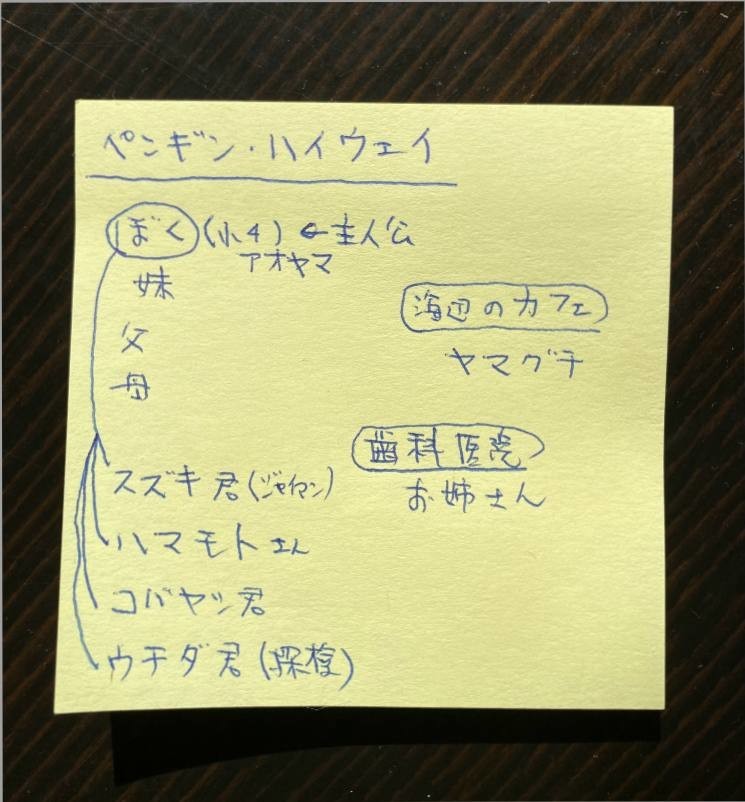 ペンギン・ハイウェイ
ぼく (小4) ← 主人公
アオヤマ
妹
父
母
スズキ君 (ジャイアン)
ハマモトさん
コバヤシ君
ウチダ君 (探検)
海辺のカフェ
ヤマグチ
歯科医院
お姉さん